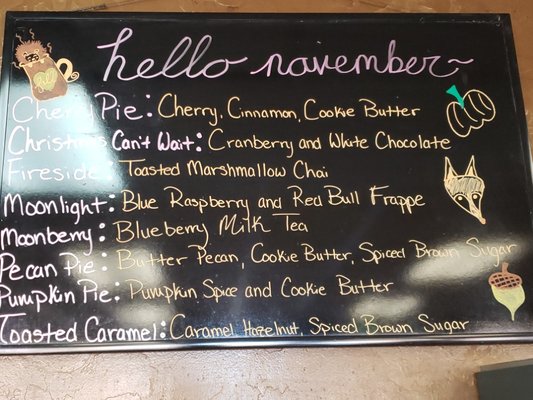 hello november~
Cherry Pie: Cherry, Cinnamon, Cookie Butter
Christmas Can't Wait: Cranberry and White Chocolate
Fireside: Toasted Marshmallow Chai
Moonlight: Blue Raspberry and Red Bull Frappe
Moonberry: Blueberry Milk Tea
Pecan Pie: Butter Pecan, Cookie Butter, Spiced Brown Sugar
Pumpkin Pie: Pumpkin Spice and Cookie Butter
Toasted Caramel: Caramel, Hazelnut, Spiced Brown Sugar